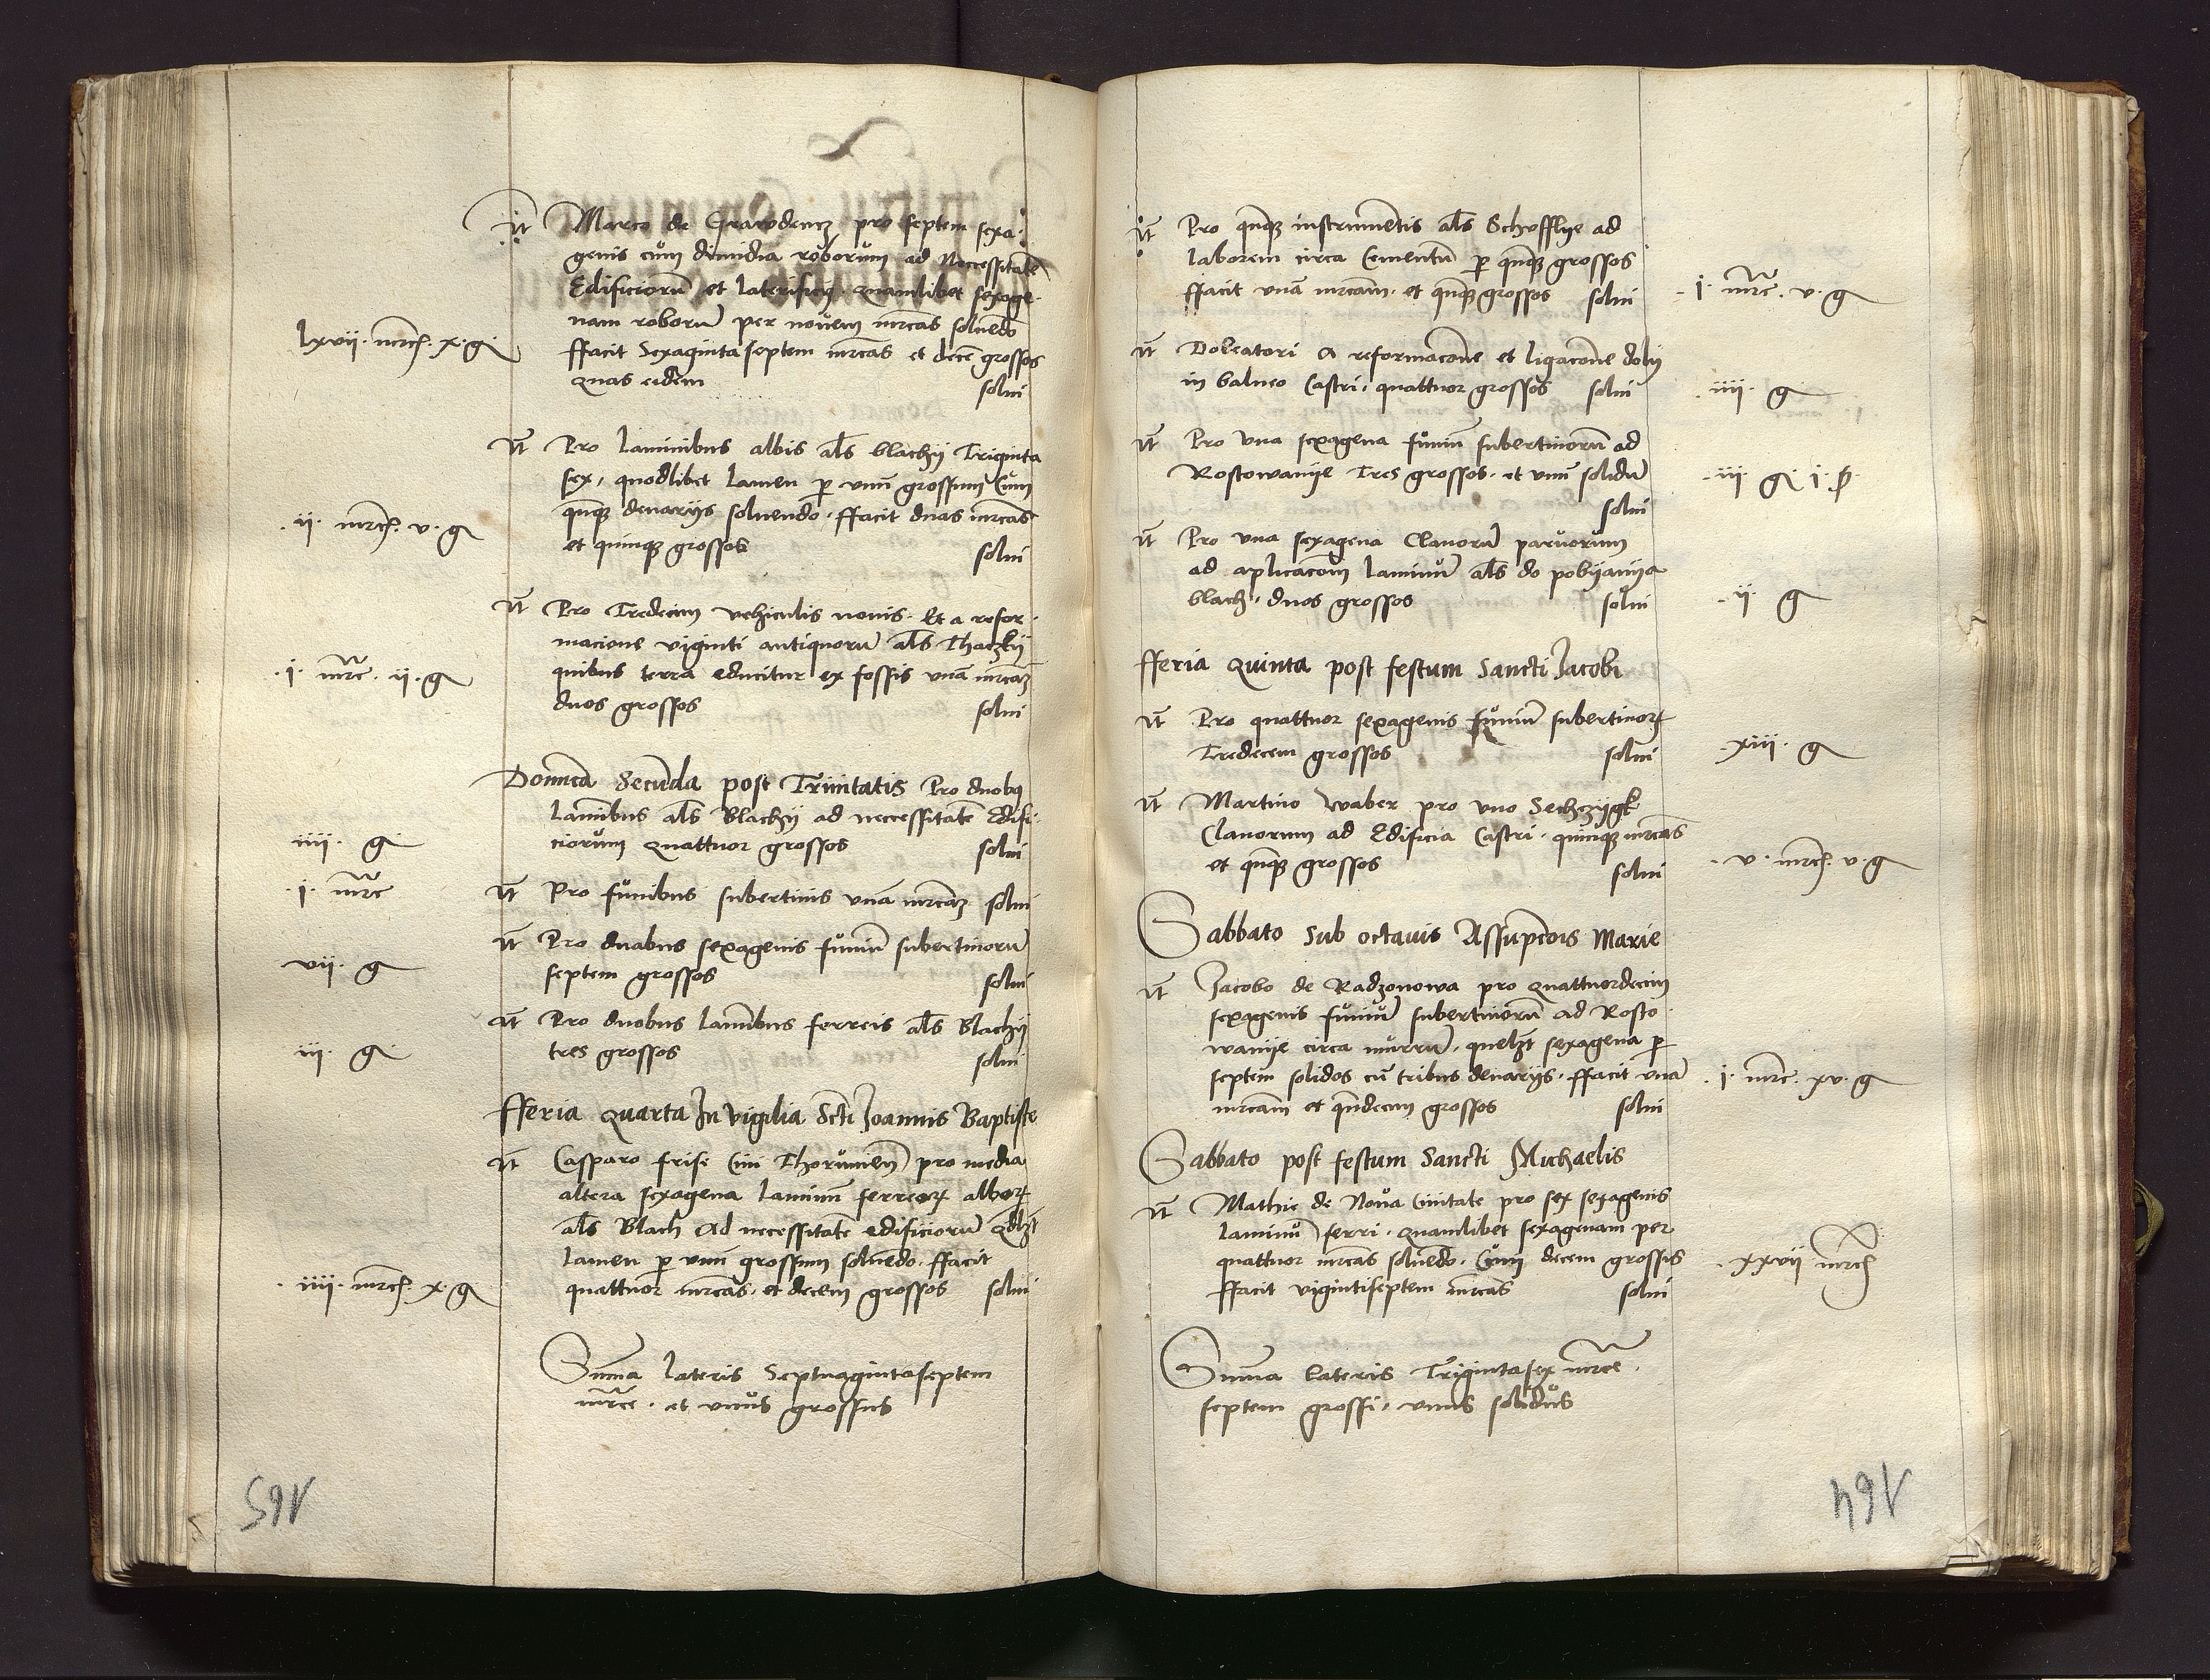 Itt Marco de Grawdencz pro septem sexa
genis cum dimidia roborum ad Necessitatē
Edificiorū et laterificij quamlibet sexage
nam roborū per novem mrcas soluēdo
lxvii mrcẜ x g ffacit Sexagintaseptem mrcas et decē grossos
quas eidem solui
It Pro Laminibus albis als blachy Triginta
sex, quodlibet lamen p vnū grossum Cum
ii mrcẜ v g qnqꝫ denariis soluendo ffacit duas mrcas
et quinqꝫ grossos solui
It Pro Tredecim vehiculis novis Et a refor
macione viginti antiquorū als Thaczky
i mrc ii g quibus terra educitur ex fossis vnā mrcaꝫ
duos grossos solui
Domica Secūda post Trinitatis Pro duobꝫ
Lamībus als Blachy ad necessitatē Edifi
iiii g ciorum quattuor grossos solui
i mrc It Pro funibus subertinis vnā mrcaꝫ solui
It Pro duabus sexagenis funiū subertinorū
vii g septem grossos solui
It Pro duobus Lamībus ferreis als Blachy
iii g tres grossos solui
fferia quarta In vigilia Scti Joannis Baptiste
It Casparo frise Civi Thoruniēn pro media
altera sexagena laminū ferreorꝫ alborꝫ
als Blach ad necessitatē edificiorū qdlꝫt
lamen p vnū grossum soluēdo ffacit
iiii mrcẜ x g quattuor mrcas et decem grossos solui
Suma lateris Septuagintaseptem
mrce et vnus grossus
165
It Pro qnqꝫ instrumētis als Schufflye ad
laborem circa Cementū p qnqꝫ grossos
ffacit vnā mrcam et qnqꝫ grossos solui i mrc v g
It Doleatori a reformacōne et ligacōne dolij
in balneo Castri quattuor grossos solui iiii g
It Pro vna sexagena funiū subertinorū ad
Rostowanije Tres grossos et vnū solidū iii g i ſ
solui
It Pro vna sexagena Clauorū paruorum
ad aplicacōm laminū als do pobyanya
blach duos grossos solui ii g
fferia quinta post festum Sancti Jacobi
It Pro quattuor sexagenis funiū subertinorꝫ
Tredecem grossos solui xiii g
It Martino Waber pro vno Sechczygk
Clauorum ad Edificia Castri quinqꝫ mrcas
et qnqꝫ grossos solui v mrcẜ v g
Sabbato sub octauis Assupcōis Marie
It Jacobo de Radzonowa pro quattuordecim
sexagenis funiū subertinorū ad Rosto
wanije circa murrū quelꝫt sexagena p
septem solidos cū tribus denariis ffacit vnā i mrc xv g
mrcam et qndecim grossos solui
Sabbato post festum Sancti Michaelis
It Mathie de Noua Ciuitate pro sex sexagenis
laminū ferri quamlibet sexagenam per
quattuor mrcas soluēdo Cum decem grossis xxvii mrcẜ
ffacit vigintiseptem mrcas solui
Suma lateris Trigintasex mrce
septem grossi vnus solidus
164